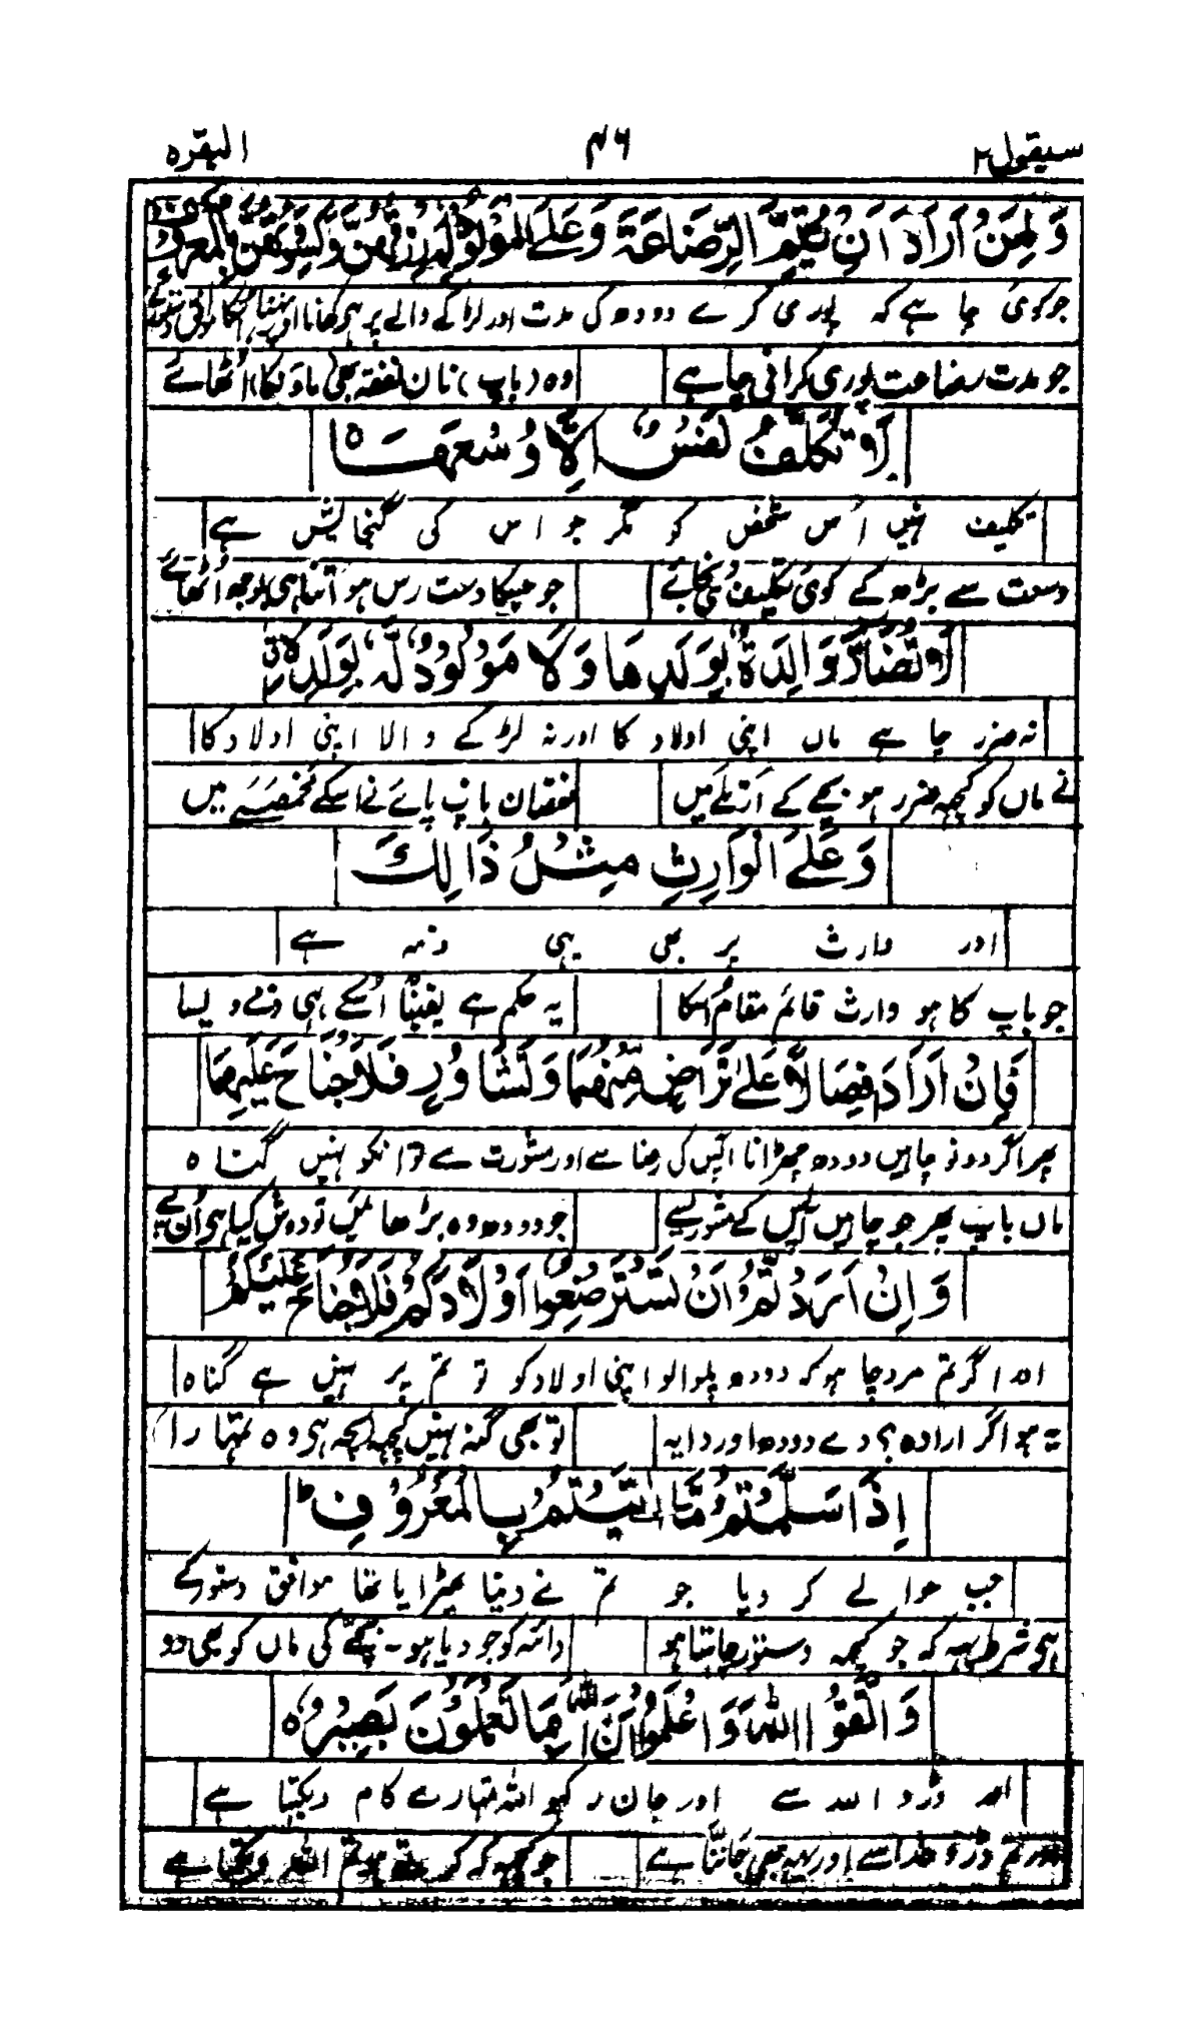 سیقول ۲ ۴۶ البقرہ
وَلِمَنْ اَرَادَ اَنْ يُّتِمَّ الرِّضَاعَةَ وَعَلَى الْمَوْلُوْدِ لَهٗ رِزْقُهُنَّ وَكِسْوَتُهُنَّ بِالْمَعْرُوْفِ
جو کوئی چاہے کہ پوری کرے دودھ کی مدت اور لڑکے والے پر ہے کھانا اور پہننا اُنکا موافق دستور کے
جو مدت رضاعت پوری کرانی چاہے وہ (باپ) نان نفقہ بھی ماؤنکا اُٹھائے
لَا تُكَلَّفُ نَفْسٌ اِلَّا وُسْعَهَا ۵
تکلیف نہیں اُس شخص کو مگر جو اس کی گنجائیش ہے
وسعت سے بڑھ کے کوئی تکلیف نہ پائے جو جسکا دست رس ہو اتنا ہی بوجھ اُٹھائے
لَا تُضَآرَّ وَالِدَةٌۢ بِوَلَدِهَا وَلَا مَوْلُوْدٌ لَّهٗ بِوَلَدِهٖ
نہ ضرر چاہے ماں اپنی اولاد کا اور نہ لڑکے والا اپنی اولاد کا
نے ماں کو کچھ ضرر ہو بچے کے اڑنگے میں نقصان باپ پائے نے اسکے مخمصے میں
وَعَلَى الْوَارِثِ مِثْلُ ذَالِكَ
اور وارث پر بھی یہی ذمہ ہے
جو باپ کا ہو وارث قائم مقام اُسکا یہ حکم ہے یقینًا اُسکے ہی ذمے ویسا
فَاِنْ اَرَادَ فِصَالًا عَلٰى تَرَاضٍ مِّنْهُمَا وَتَشَاوُرٍ فَلَا جُنَاحَ عَلَيْهِمَا
پھر اگر دونو چاہیں دودھ چھڑانا آپس کی رضا سے اور مشورت سے تو انکو نہیں گناہ
ماں باپ پھر جو چاہیں آپس کے مشورے سے جو دودھ وہ بڑھا لیں تو دوش کیا ہی اُن پہ
وَاِنْ اَرَدْتُّمْ اَنْ تَسْتَرْضِعُوْا اَوْلَادَكُمْ فَلَا جُنَاحَ عَلَيْكُمْ
اور اگر تم مرد چاہو کہ دودھ پلوالو اپنی اولاد کو تو تم پر نہیں ہے گناہ
ہو اگر ارادہ دے دودھ اور دایہ تو بھی گنہ نہیں کچھ وہ تمہارا
اِذَا سَلَّمْتُمْ مَّا اٰتَيْتُمْ بِالْمَعْرُوْفِ ط
جب حوالے کر دیا جو تم نے دینا ٹھہرایا تھا موافق دستور کے
ہی شرط یہہ کہ جو کچھہ دستور جانتا ہو دائہ کو جو دیا ہو۔ بچے کی ماں کو بھی دو
وَاتَّقُوا اللّٰهَ وَاعْلَمُوْا اَنَّ اللّٰهَ بِمَا تَعْمَلُوْنَ بَصِيْرٌ ۵
اور ڈرو اللہ سے اور جان رکھو اللہ تمہارے کام دیکھتا ہے
اور تم ڈرو خدا سے اور یہہ بھی جاننا ہے جو کچھہ کہ کرتے ہو تم اللہ دیکھتا ہے